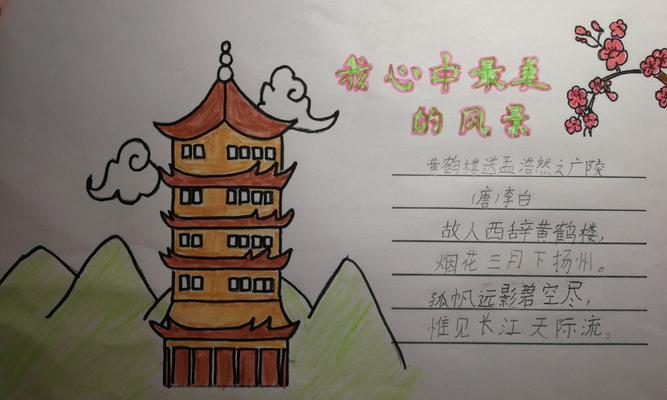 我心中最美
的风景
黄鹤楼送孟浩然之广陵
(唐)李白
故人西辞黄鹤楼,
烟花三月下扬州。
孤帆远影碧空尽,
惟见长江天际流。